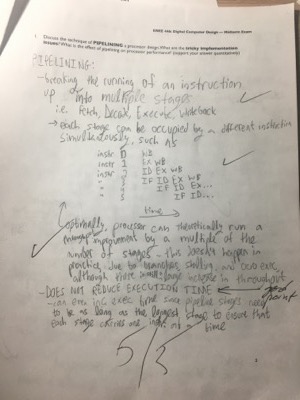 ENEE 446: Digital Computer Design — Midterm Exam
1. Discuss the technique of PIPELINING a processor design. What are the tricky implementation
issues? What is the effect of pipelining on processor performance? (support your answer quantitatively)
PIPELINING:
- breaking the running of an instruction
up into multiple stages
i.e. Fetch, Decode, Execute, Writeback
→ each stage can be occupied by a different instruction
simultaneously, such as
instr 0 WB
instr 1 EX WB
instr 2 ID EX WB
" 3 IF ID EX WB
" 4 IF ID EX...
" 5 IF ID...
time →
optimally, processor can theoretically run a
improvement by a multiple of the
number of stages. This doesn't happen in
practice, due to branches, stalling, and
although there is still huge increase in throughput
- DOES NOT REDUCE EXECUTION TIME
good
point
- can even inc exec time since pipeline stages need
to be as long as the longest stage to ensure that
each stage carries one instr at a time
5/3
3